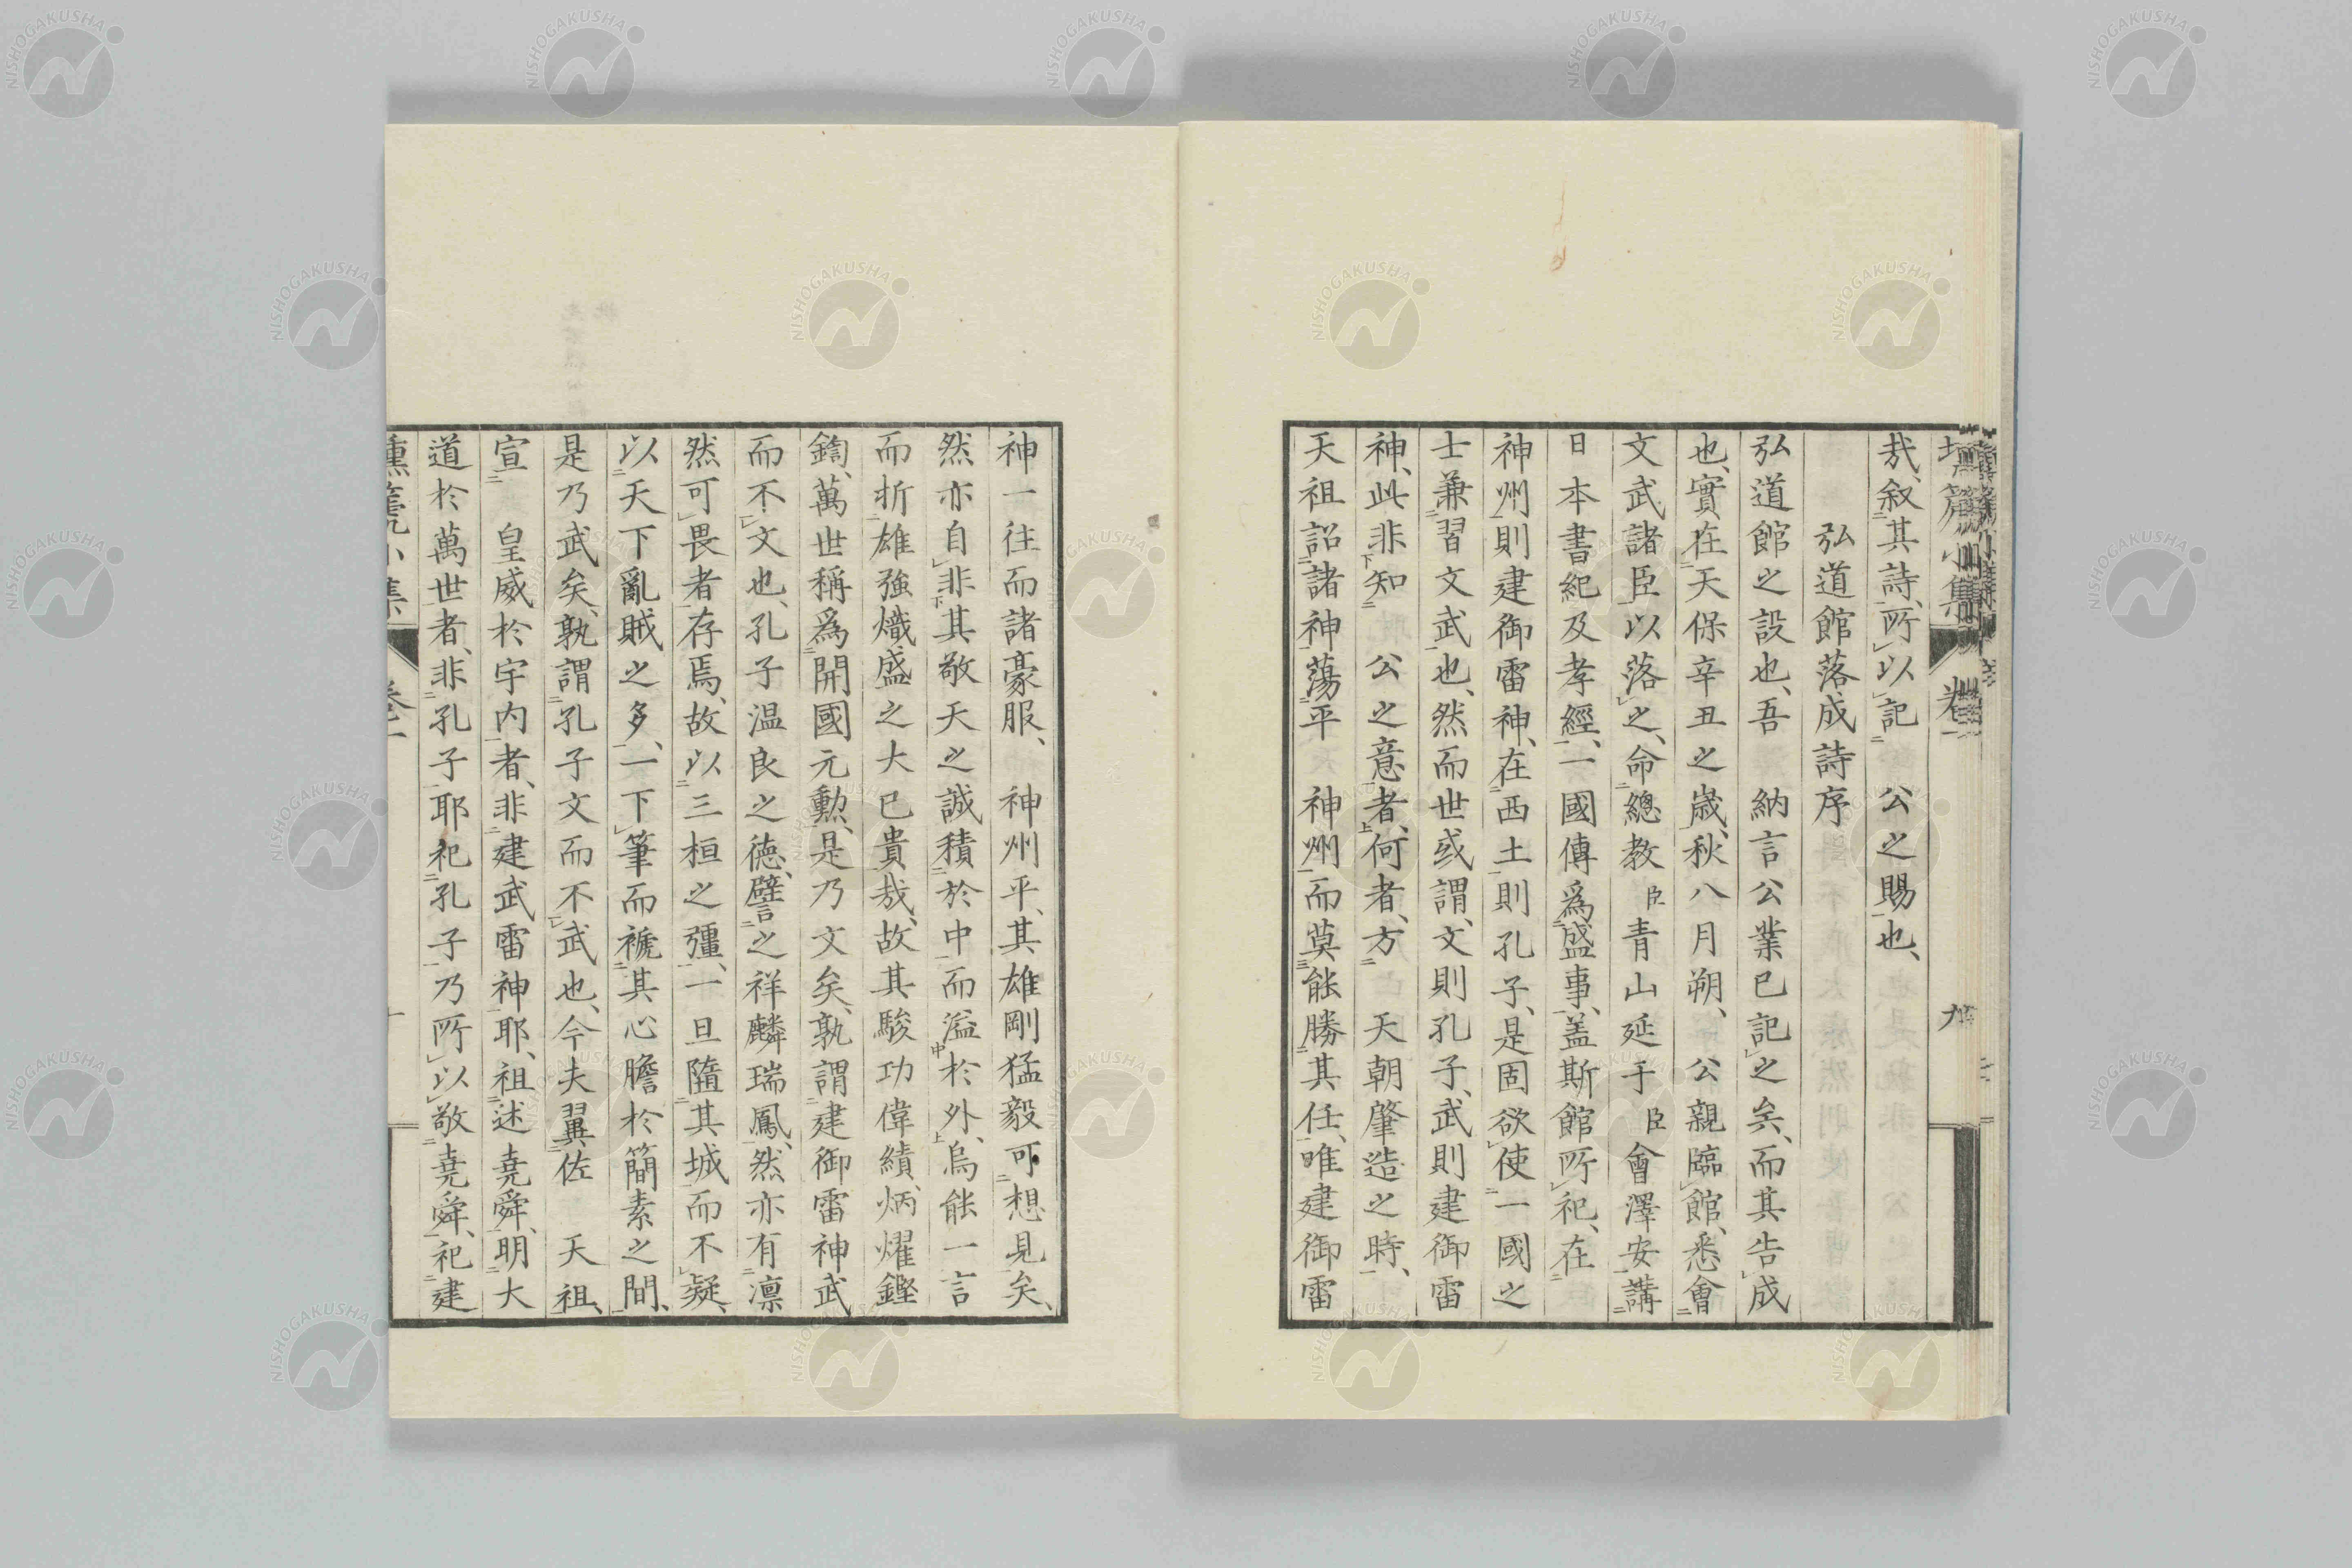 哉、叙其詩、所以記　公之賜也、
弘道館落成詩序
弘道館之設也、吾　納言公業已記之矣、而其告成
也、實在天保辛丑之歳、秋八月朔、　公親臨館、悉會
文武諸臣以落之、命總教臣青山延于臣會澤安講
日本書紀及孝經、一國傳爲盛事、蓋斯館所祀、在
神州則建御雷神、在西土則孔子、是固欲使一國之
士兼習文武也、然而世或謂、文則孔子、武則建御雷
神、此非知　公之意者、何者、方　天朝肇造之時、
天祖詔諸神蕩平　神州、而莫能勝其任、唯建御雷
壎篪小集　卷一　九
神一往而諸豪服、　神州平、其雄剛猛毅可想見矣、
然亦自非其敬天之誠積於中而溢於外、烏能一言
而折雄強熾盛之大已貴哉、故其駿功偉績、炳燿鏗
鍧、萬世稱爲開國元勲、是乃文矣、孰謂建御雷神武
而不文也、孔子温良之徳、譬之祥麟瑞鳳、然亦有凛
然可畏者存焉、故以三桓之彊、一旦隨其城而不疑、
以天下亂賊之多、一下筆而褫其心膽於簡素之間、
是乃武矣、孰謂孔子文而不武也、今夫翼佐　天祖、
宣　皇威於宇内者、非建武雷神耶、祖述堯舜、明大
道於萬世者、非孔子耶、祀孔子乃所以敬堯舜、祀建
壎篪小集　卷一　十
NISHOGAKUSHA